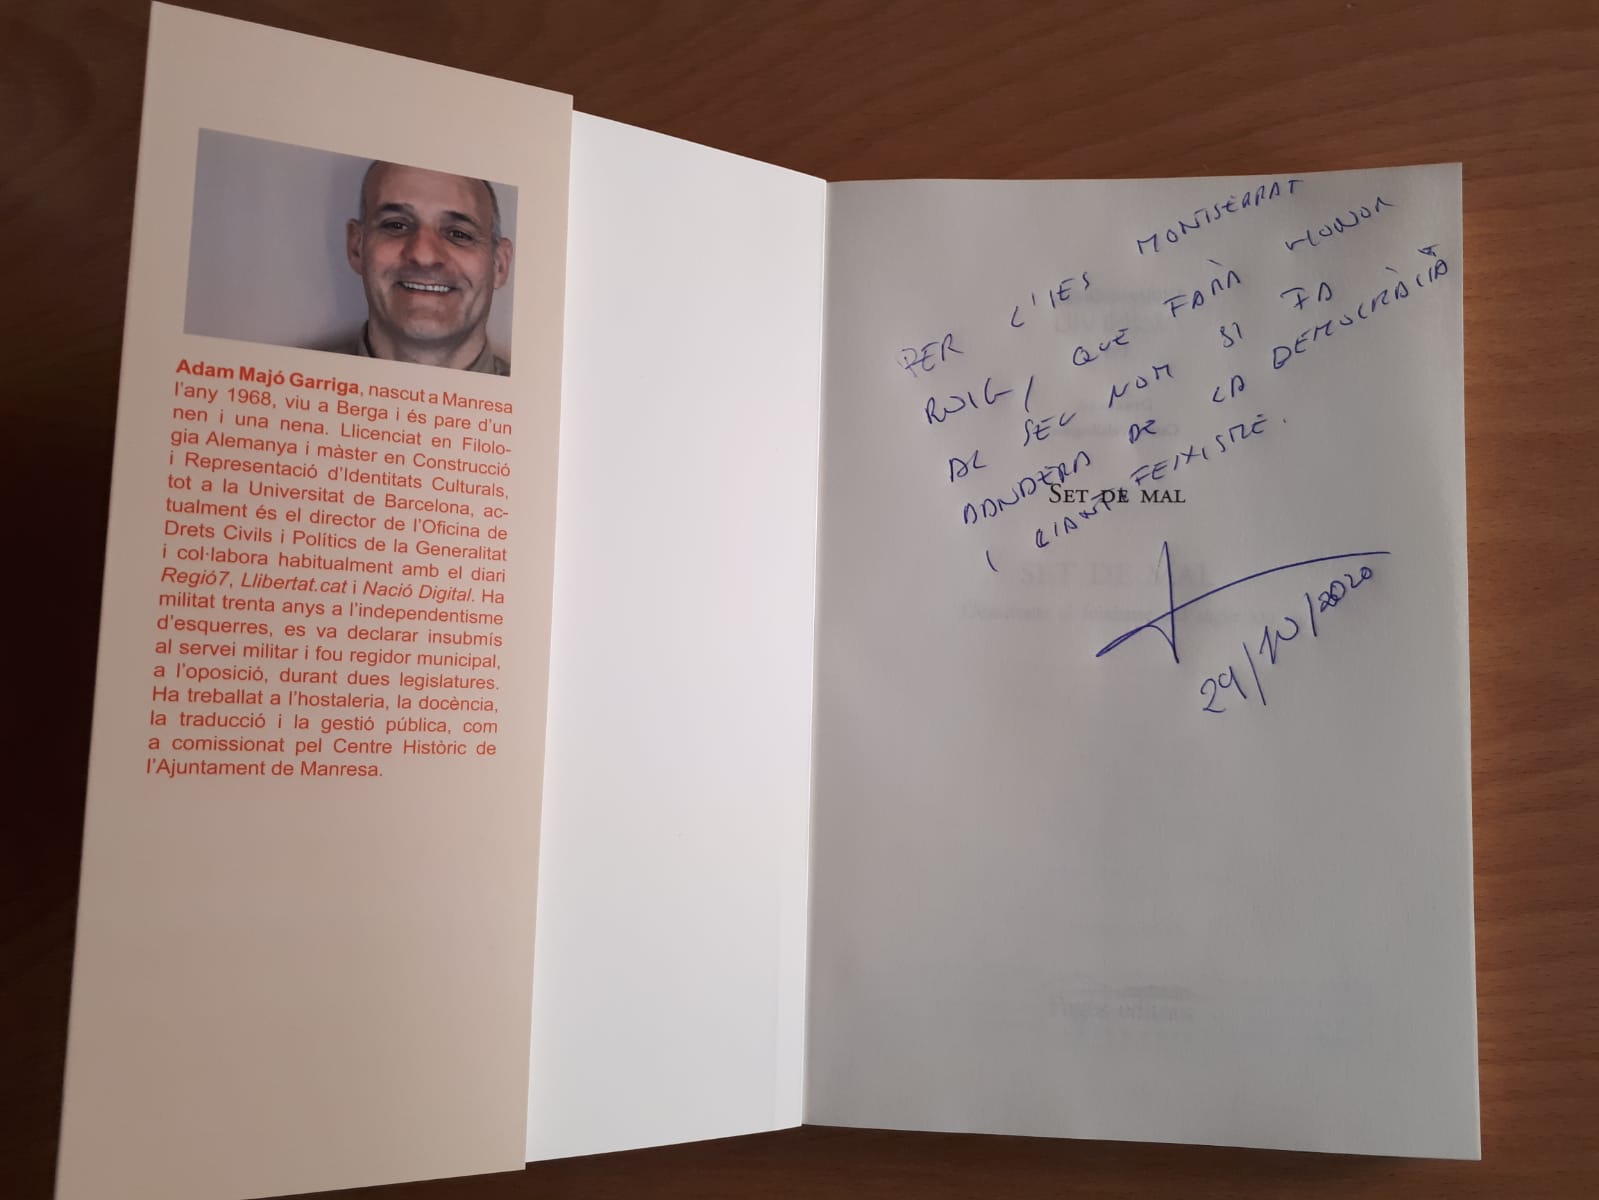 Adam Majó Garriga, nascut a Manresa
l'any 1968, viu a Berga i és pare d'un
nen i una nena. Llicenciat en Filolo-
gia Alemanya i màster en Construcció
i Representació d'Identitats Culturals,
tot a la Universitat de Barcelona, ac-
tualment és el director de l'Oficina de
Drets Civils i Polítics de la Generalitat
i col·labora habitualment amb el diari
Regió7, Llibertat.cat i Nació Digital. Ha
militat trenta anys a l'independentisme
d'esquerres, es va declarar insubmís
al servei militar i fou regidor municipal,
a l'oposició, durant dues legislatures.
Ha treballat a l'hostaleria, la docència,
la traducció i la gestió pública, com
a comissionat pel Centre Històric de
l'Ajuntament de Manresa.
PER L'IES MONTSERRAT
ROIG, QUE FARÀ HONOR
AL SEU NOM SI FA
BANDERA DE LA DEMOCRÀCIA
I L'ANTIFEIXISME.
SET DE MAL
29/10/2020
SET DE MAL